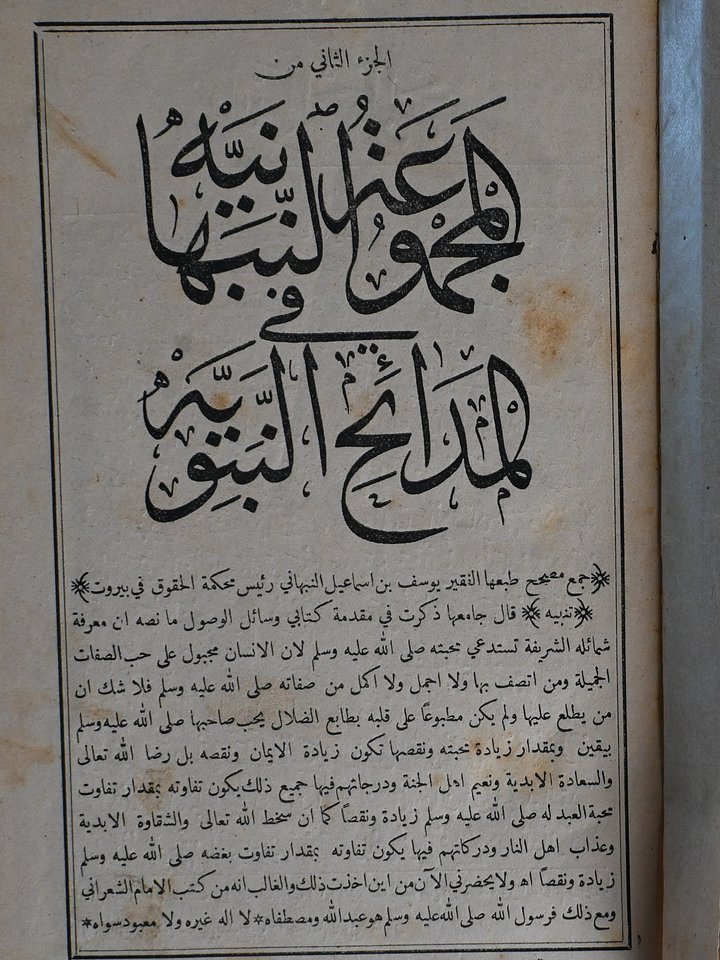 الجزء الثاني من
المجموعة النبهانية
في
المدائح النبوية
جمع مصحح طبعها الفقير يوسف بن اسماعيل النبهاني رئيس محكمة الحقوق في بيروت
﴿تنبيه﴾ قال جامعها ذكرت في مقدمة كتابي وسائل الوصول ما نصه ان معرفة
شمائله الشريفة تستدعي محبته صلى الله عليه وسلم لان الانسان مجبول على حب الصفات
الجميلة ومن اتصف بها ولا اجمل ولا اكمل من صفاته صلى الله عليه وسلم فلا شك ان
من يطلع عليها ولم يكن مطبوعاً على قلبه بطابع الضلال يحب صاحبها صلى الله عليه وسلم
بيقين وبمقدار زيادة محبته ونقصها تكون زيادة الايمان ونقصه بل رضا الله تعالى
والسعادة الابدية ونعيم اهل الجنة ودرجاتهم فيها جميع ذلك يكون تفاوته بمقدار تفاوت
محبة العبد له صلى الله عليه وسلم زيادة ونقصاً كما ان سخط الله تعالى والشقاوة الابدية
وعذاب اهل النار ودركاتهم فيها يكون تفاوته بمقدار تفاوت بغضه صلى الله عليه وسلم
زيادة ونقصاً اه ولا يحضرني الآن من اين اخذت ذلك والغالب انه من كتب الامام الشعراني
ومع ذلك فرسول الله صلى الله عليه وسلم هو عبد الله ومصطفاه * لا اله غيره ولا معبود سواه *